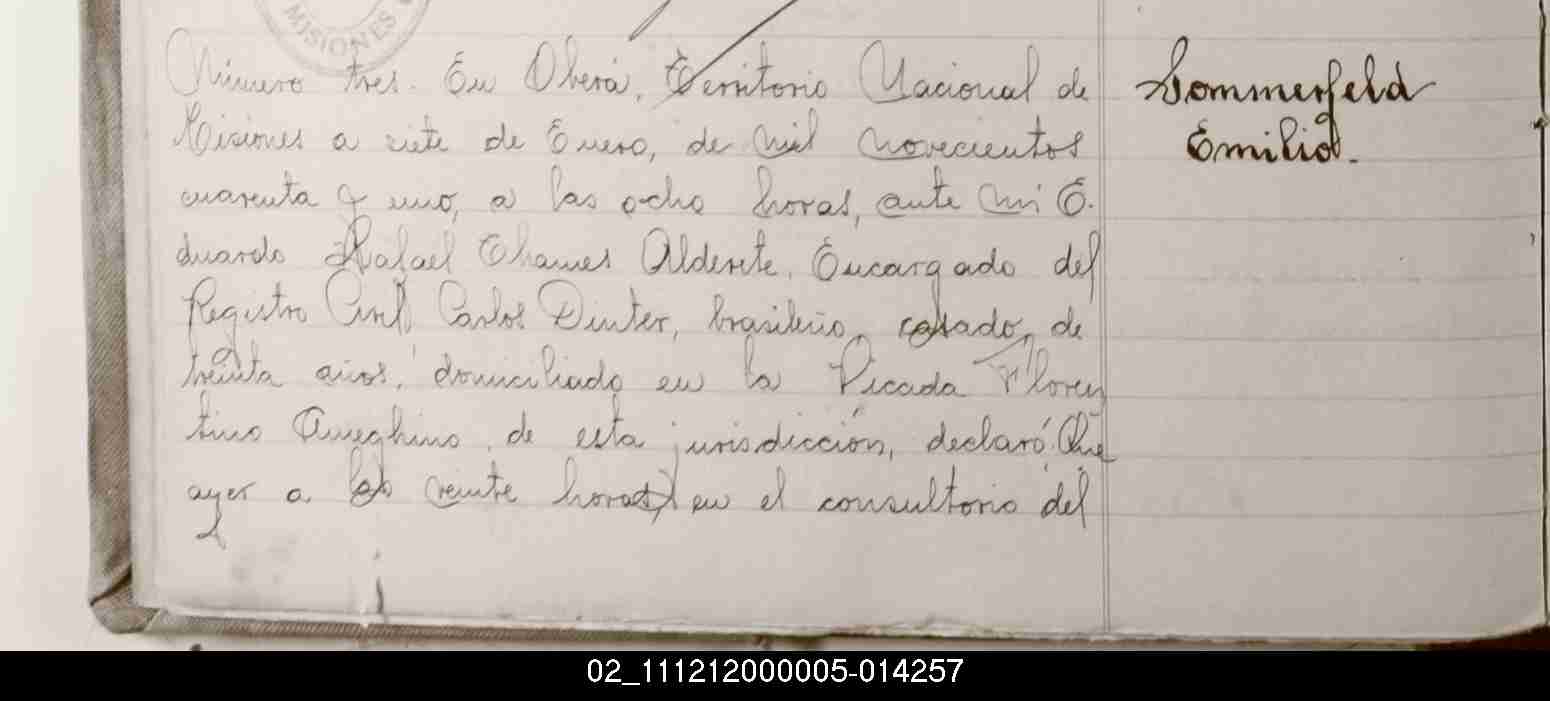 MISIONES
Número tres. En Oberá, Territorio Nacional de
Misiones a siete de Enero, de mil novecientos
cuarenta y uno, a las ocho horas, ante mi E.
duardo Rafael Chames Alderete, Encargado del
Registro Civil, Carlos Dinter, brasileño, casado, de
treinta años, domiciliado en la Picada Floren
tino Ameghino, de esta jurisdicción, declaró: Que
ayer a las veinte horas, en el consultorio del
Sommerfeld
Emilio.
02_111212000005-014257